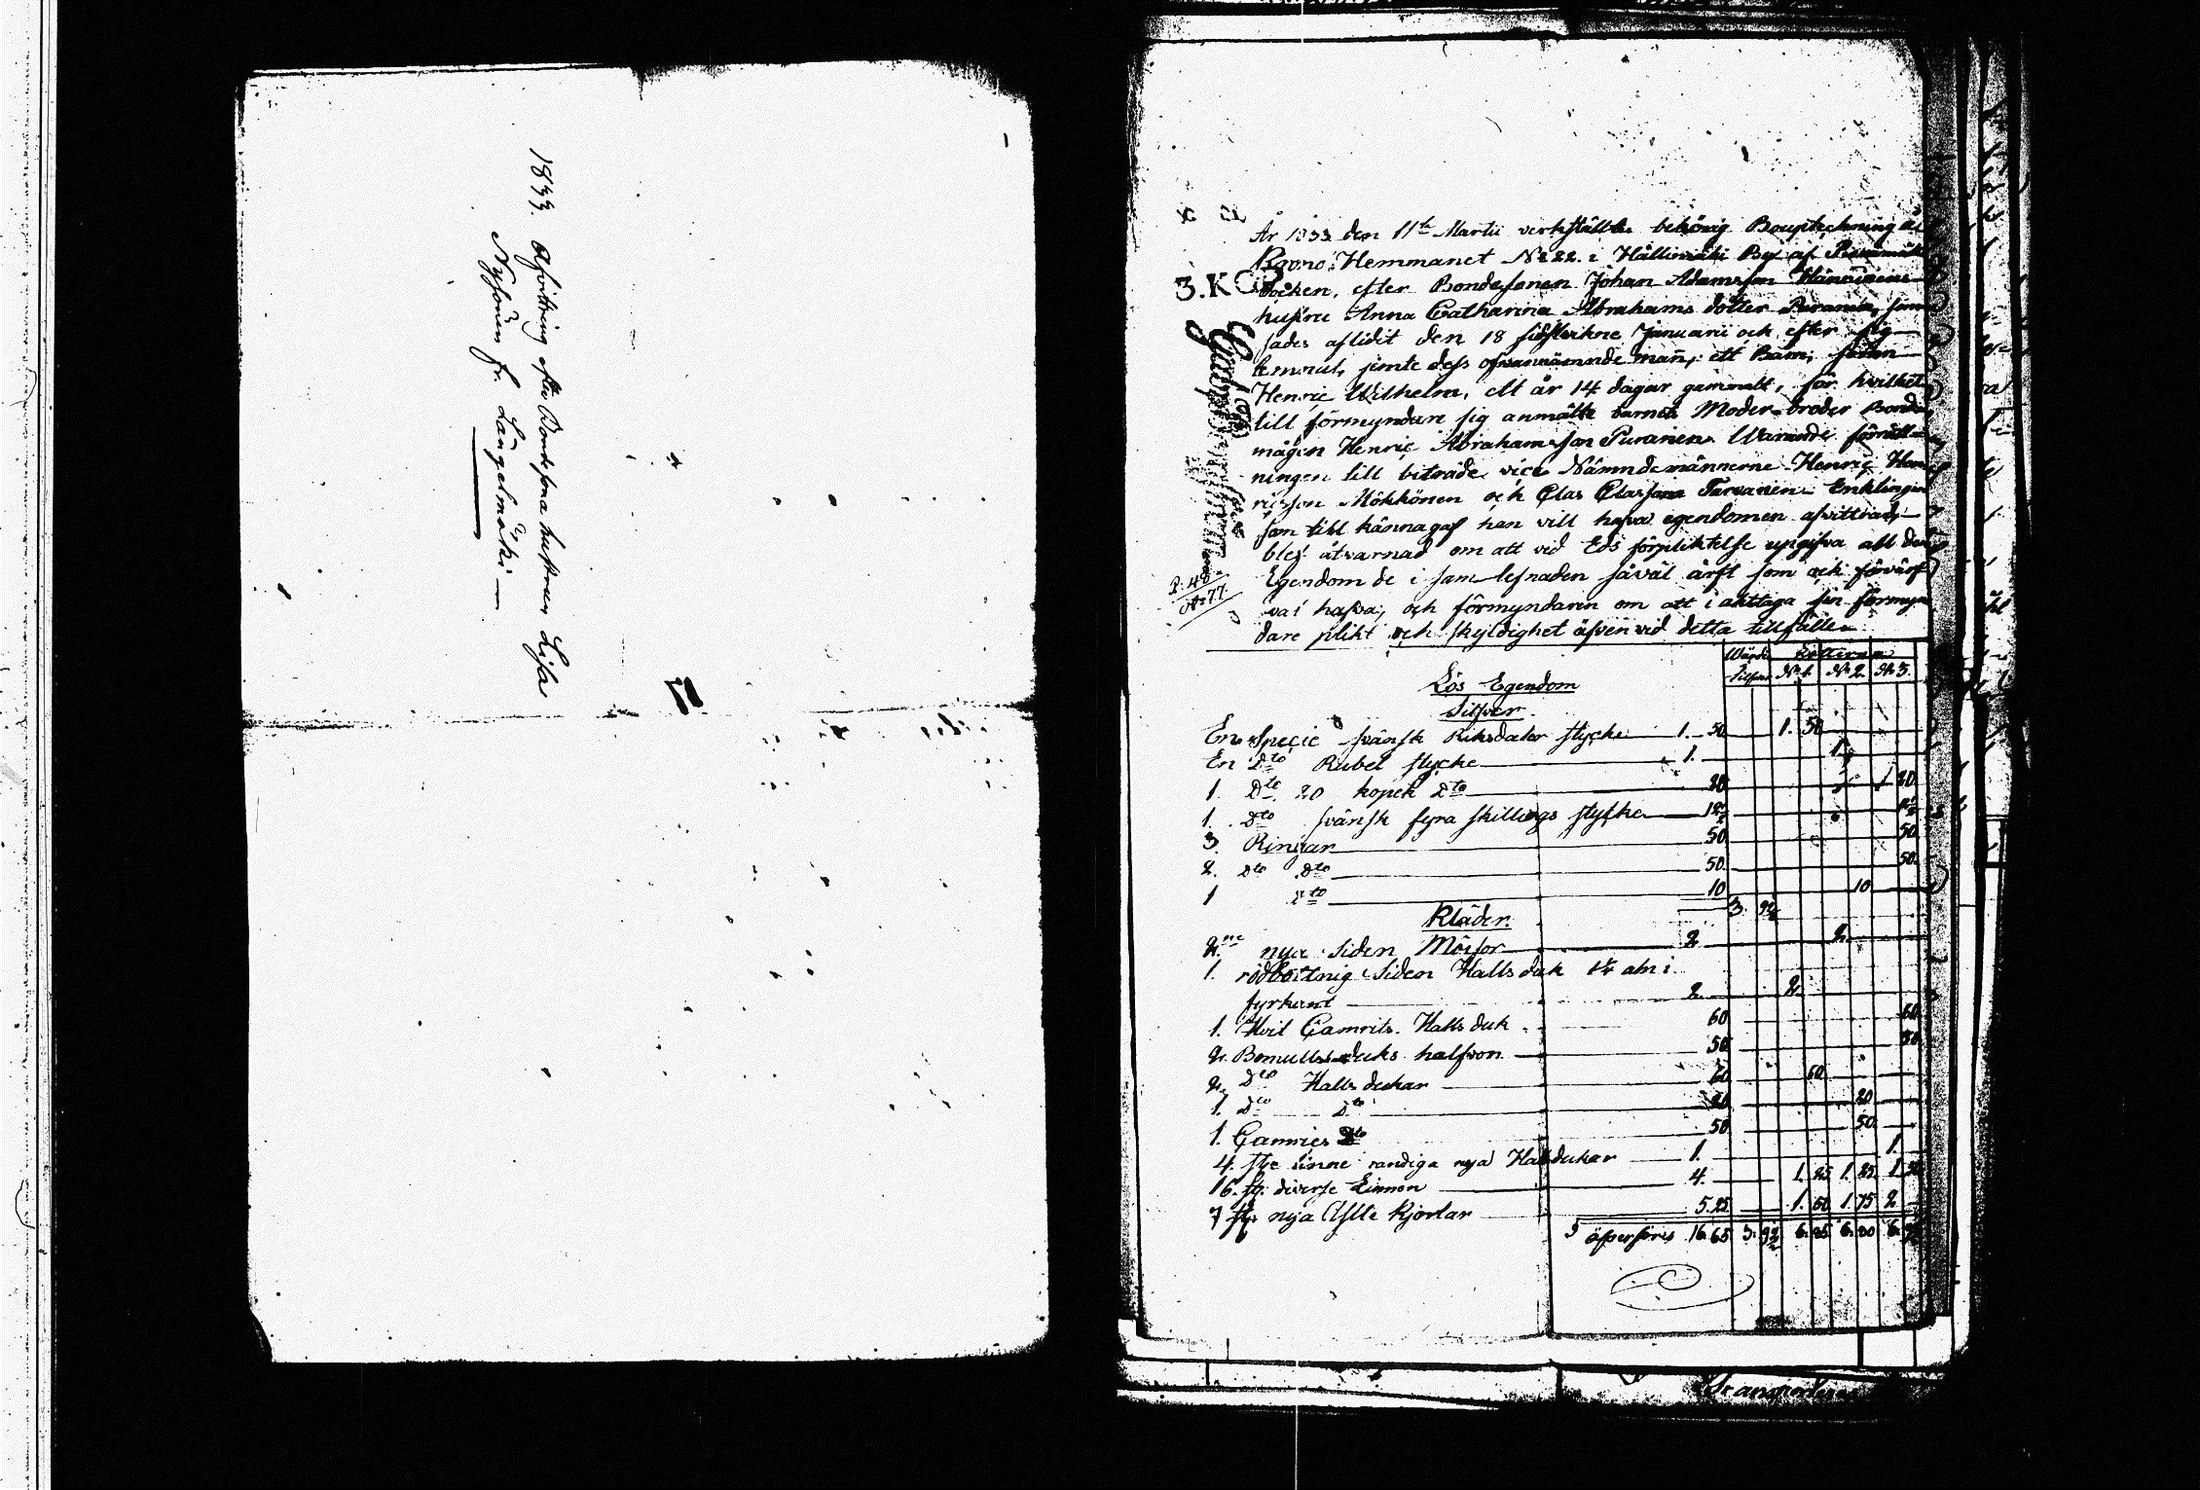 1833. Afvittring efter Bondesona hustrun Lisa
Nyssönen fr. Längelmäki
År 1833 den 11te Martii verkställtes behörig Bouptekning å
Hemmanet No 22. i Hällinmäki By af
Socken, efter Bondesonen Johan Adamsson
hustru Anna Catharina Abrahams dotter Puranen, som
sades aflidit den 18 sidstlidne Januarii och efter sig
lemnat, jemte dess ofvannämnde man, ett Barn, sonen
Henric Wilhelm, ett år 14 dagar gammalt, för hvilket
till förmyndare sig anmälte barnets Moder-broder Bonde
mågen Henric Abrahamsson Puranen. Warande förrätt-
ningen till biträde vice Nämndemännerne Henric Hen-
ricsson Mökkönen och Clas Classon Tarvanen. Enklingen
som tillkännagaf han vill hafva egendomen afvittrad,
blef åtvarnad om att vid Eds förpliktelse uppgifva all den
Egendom de i samlefnaden såväl ärft som ock förvärf
vat hafva, och förmyndaren om att i akttaga sin förmyn
dare plikt och skyldighet äfven vid detta tillfälle.
3. K
P. 48
77
Wärde Lotterna
Silfver No 1. No 2. No 3.
Lös Egendom
Silfver.
En Specie svänsk Riksdaler stycke 1. 50 1. 50
En Dto Rubel stycke 1. 1.
1. Dto 20 kopek Dto 20 20
1. Dto svänsk fyra skillings stycke 12½
3. Ringar 50 50
2. Dto Dto 50 50.
1 Dto 10 10
3. 92½
Kläder.
2ne nya Siden Mössor 2 2.
1. rödbottnig Siden Halls duk 1¼ aln i
fyrkant 2 2.
1. Hvit Camrits Halls duk 60 60
2. Bomulls duks halfvon 50 50
2. Dto Halls dukar 60 60
1. Dto Dto 20 20
1. Camrics Dto 50 50
4. st linne randiga nya Halsdukar 1. 1.
16. st. diverse Linnen 4. 1. 25 1. 25 1. 50
7 st nya Ylle kjortlar 5. 25 1. 50 1. 75 2
öfverföres 16. 65 3. 92½ 6. 85 6. 60 6.
Transporteras